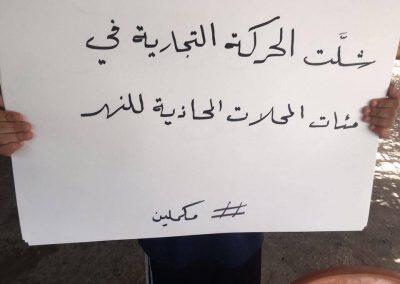 شلَّت الحركة التجارية في
مئات المحلات المحاذية للنهر
# مكملين